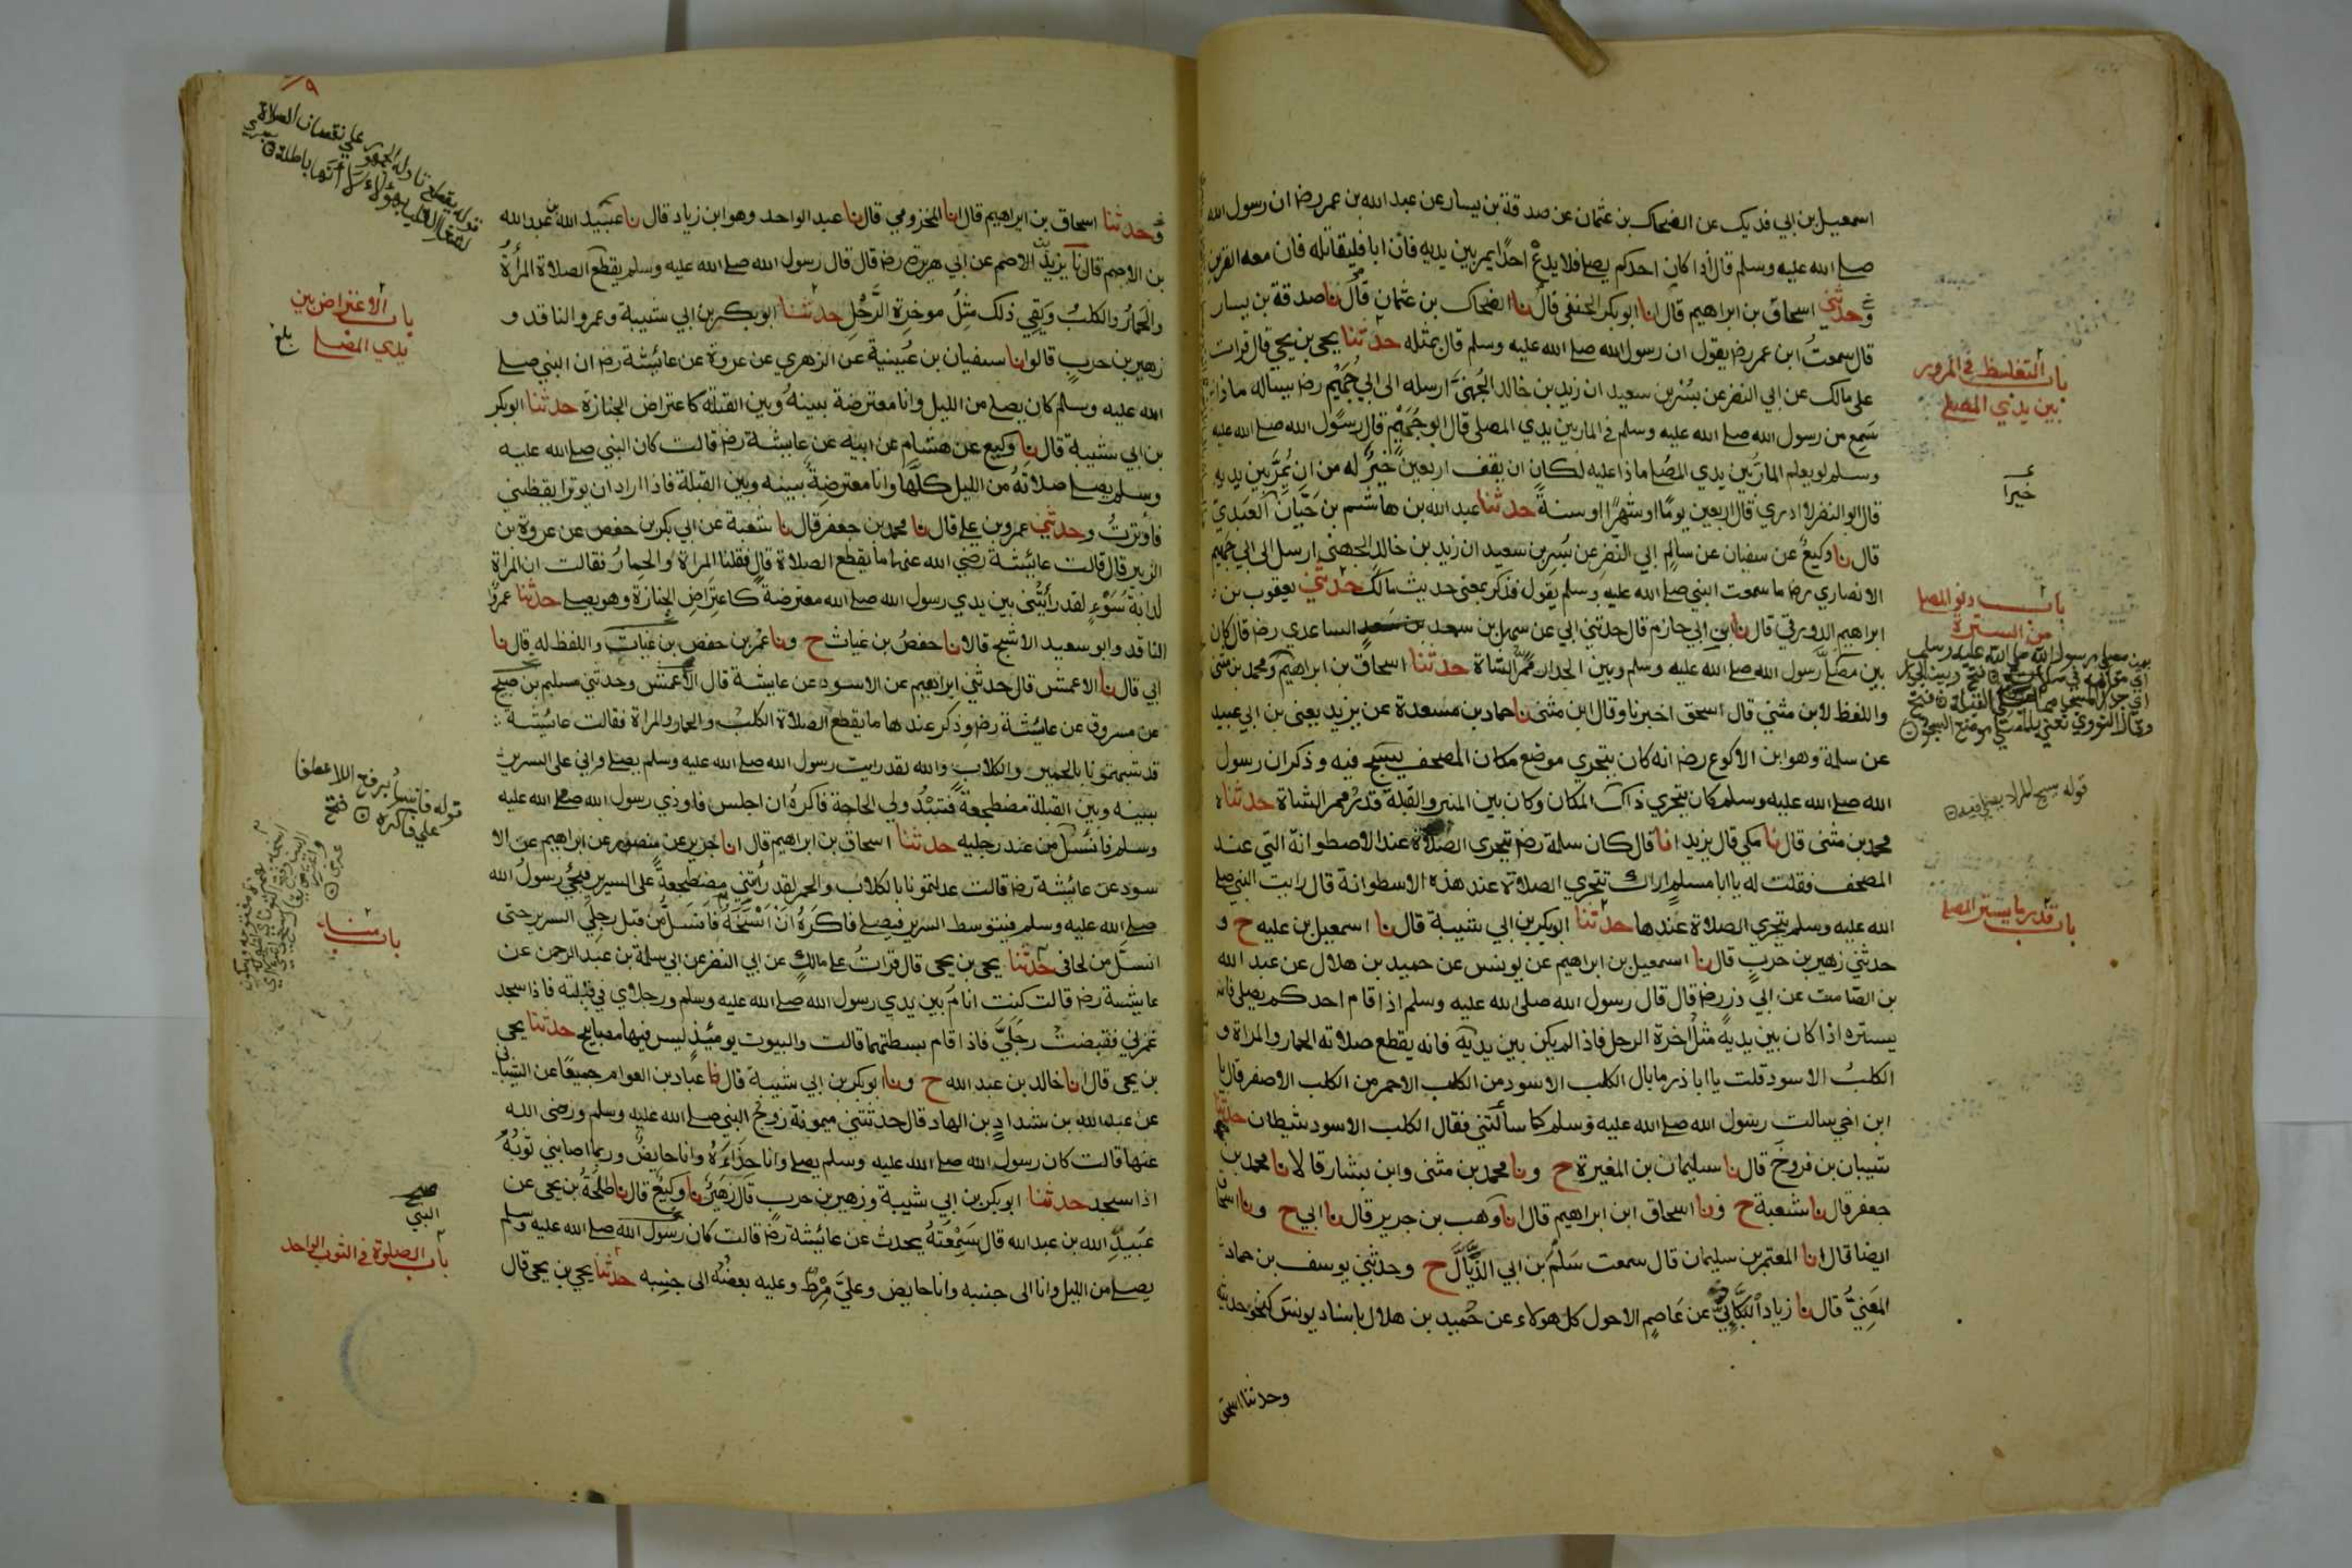 اسمعيل بن ابي فديك عن الضحاك بن عثمان عن صدقة بن يسار عن عبد الله بن عمر رضـ ان رسول الله
صلى الله عليه وسلم قال اذا كان احدكم يصلي فلا يدع احدًا يمر بين يديه فان ابا فليقاتله فان معه القرين
وحدثني اسحاق بن ابراهيم قال انا ابو بكر الحنفي قال نا الضحاك بن عثمان قال نا صدقة بن يسار
قال سمعتُ ابن عمر رضـ يقول ان رسول الله صلى الله عليه وسلم قال بمثله حدثنا يحيى بن يحيى قال قرات
على مالك عن ابي النضر عن بُسْر بن سعيد ان زيد بن خالد الجُهنيَّ ارسله الى ابي جُهَيْم رضـ يساله ماذا
سَمِع من رسول الله صلى الله عليه وسلم في المار بين يدي المصلى قال ابو جُهَيْم قال رسول الله صلى الله عليه
وسلم لو يعلم المارُّ بين يدي المصلي ماذا عليه لكان ان يقف اربعين خيرٌ له من ان يمُرَّ بين يديه
قال ابو النضر لا ادري قال اربعين يومًا او شهرًا او سنةً حدثنا عبد الله بن هاشم بن حَيَّان العَبَديّ
قال نا وكيعٌ عن سفيان عن سالم ابي النضر عن بُسر بن سعيد ان زيد بن خالد الجهني ارسل الى ابي جهيم
الانصاري رضـ ما سمعت النبي صلى الله عليه وسلم يقول فذكر بمعنى حديث مالك حدثني يعقوب بن
ابراهيم الدورقي قال نا ابن ابي حازم قال حدثني ابي عن سهل بن سعد الساعدي رضـ قال كان
بين مصلَّى رسول الله صلى الله عليه وسلم وبين الجدار ممرُّ الشاة حدثنا اسحاق بن ابراهيم ومحمد بن مثنى
واللفظ لابن مثني قال اسحق اخبرنا وقال ابن مثنى نا حماد بن مسعدة عن يزيد يعنى بن ابي عبيد
عن سلمة وهو ابن الاكوع رضـ انه كان يتحري موضع مكان المصحف يسبح فيه وذكر ان رسول
الله صلى الله عليه وسلم كان يتحري ذاك المكان وكان بين المنبر والقبلة قدر ممر الشاة حدثناه
محمد بن مثنى قال نا مكي قال يزيد انا قال كان سلمة رضـ يتحرى الصلاة عند الاصطوانة التي عند
المصحف فقلت له يا ابا مسلم اراك تتحري الصلاة عند هذه الاسطوانة قال رايت النبي صلى
الله عليه وسلم يتحرى الصلاة عندها حدثنا ابو بكر بن ابي شيبة قال نا اسمعيل بن عليه ح و
حدثني زهير بن حرب قال نا اسمعيل بن ابراهيم عن يونس عن حميد بن هلال عن عبد الله
بن الصّامت عن ابي ذر رضـ قال قال رسول الله صلى الله عليه وسلم اذا قام احدكم يصلي فانه
يستره اذا كان بين يديه مثلُ اخرة الرحل فاذا لم يكن بين يديه فانه يقطع صلاته الحمار والمراة و
الكلبُ الاسود قلت يا ابا ذر ما بال الكلب الاسود من الكلب الاحمر من الكلب الاصفر قال يا
ابن اخي سالت رسول الله صلى الله عليه وسلم كما سألتني فقال الكلب الاسود شيطان حدثنا
شيبان بن فروخ قال نا سليمان بن المغيرة ح ونا محمد بن مثنى وابن بشار قالا نا محمد بن
جعفر قال نا شعبة ح ونا اسحاق ابن ابراهيم قال انا وهب بن جرير قال نا ابي ح ونا اسحاق
ايضا قال انا المعتمر بن سليمان قال سمعت سَلْمَ بن ابي الذَّيَّال ح وحدثني يوسف بن حماد
المَعَنيُّ قال نا زياد البَكَّائيُّ عن عاصم الاحول كل هولاء عن حُميد بن هلال باسناد يونس كنحو حديثه
وحدثنا اسحق
باب التغليظ في المرور
بين يدي المصلي
خيرا
باب دنو المصلي
من السترة
قوله يسبح المراد يصلي فيه
باب قدر ما يستر المصلي
وحدثنا اسحاق بن ابراهيم قال انا المخزومي قال نا عبد الواحد وهو ابن زياد قال نا عبيد الله بن عبد الله
بن الاصم قال نا يزيد الاصم عن ابي هريرة رضـ قال قال رسول الله صلى الله عليه وسلم يقطع الصلاة المرأةُ
والحمارُ والكلبُ وَيَقِي ذلك مِثلُ موخرة الرَّحْلِ حدثنا ابو بكر بن ابي شيبة وعمرو الناقد و
زهير بن حربٍ قالوا نا سفيان بن عُيينة عن الزهري عن عروة عن عائشة رضـ ان النبي صلى
الله عليه وسلم كان يصلي من الليل وانا معترضة بينهُ وبين القبلة كاعتراض الجنازة حدثنا ابو بكر
بن ابي شيبة قال نا وكيع عن هشام عن ابيه عن عايشة رضـ قالت كان النبي صلى الله عليه
وسلم يصلي صلاتهُ من الليل كلَّها وانا معترضةٌ بينه وبين القبلة فاذا اراد ان يوتر ايقظني
فاوترتُ وحدثني عمرو بن علي قال نا محمد بن جعفر قال نا شعبة عن ابي بكر بن حفص عن عروة بن
الزبير قال قالت عائشة رضي الله عنها ما يقطع الصلاة قال فقلنا المراة والحمارُ فقالت ان المراة
لدابةُ سَوْءٍ لقد رأيتُني بين يدي رسول الله صلى الله معترضةً كاعتِرَاضِ الجنازة وهو يصلي حدثنا عمرو
الناقد وابو سعيد الاشج قالا نا حفصُ بن غياث ح ونا عمر بن حفص بن غياث واللفظ له قال نا
ابي قال نا الاعمش قال حدثني ابراهيم عن الاسود عن عايشة قال الاعمش وحدثني مسلم بن صبيح
عن مسروق عن عايشة رضـ وذكر عندها ما يقطع الصلاة الكلبُ والحمار والمراة فقالت عائشة
قد شبهتمونا بالحمير والكلاب والله لقد رايت رسول الله صلى الله عليه وسلم يصلي واني على السرير
بينه وبين القبلة مضطجعة فتبدُو لي الحاجة فاكرهُ ان اجلس فاوذي رسول الله صلى الله عليه
وسلم فانسل من عند رجليه حدثنا اسحاق بن ابراهيم قال انا جرير عن منصور عن ابراهيم عن الا
سود عن عائشة رضـ قالت عدلتمونا بالكلاب والحمر لقد رأيتني مضطجعةً على السرير فيجئ رسولُ الله
صلى الله عليه وسلم فيتوسط السرير فيصلي فاكرهُ ان اسنحه فانسلُّ من قبل رجلَي السرير حتى
انسلَّ من لحافي حدثنا يحيى بن يحيى قال قراتُ على مالكٍ عن ابي النضر عن ابي سلمة بن عبد الرحمن عن
عايشة رضـ قالت كنت انام بين يدي رسول الله صلى الله عليه وسلم ورجلاي في قبلته فاذا سجد
غمزني فقبضتُ رجلَيَّ فاذا قام بسطتهما قالت والبيوت يومئذٍ ليس فيها مصابيح حدثنا يحيى
بن يحيى قال انا خالد بن عبد الله ح ونا ابو بكر بن ابي شيبة قال نا عباد بن العوام جميعًا عن الشيباني
عن عبد الله بن شدادِ بن الهاد قال حدثتني ميمونة زوجُ النبي صلى الله عليه وسلم ورضي الله
عنها قالت كان رسول الله صلى الله عليه وسلم يصلي وانا حِذَاءَهُ وانا حايضٌ وربما اصابني ثوبُهُ
اذا سجد حدثنا ابو بكر بن ابي شيبة وزهير بن حرب قال زهير نا وكيعٌ قال نا طلحةُ بن يحيى عن
عبيد الله بن عبد الله قال سَمِعْتهُ يحدث عن عائشة رضـ قالت كان رسول الله صلى الله عليه وسلم
يصلي من الليل وانا الى جنبه وانا حايض وعليَّ مِرْطٌ وعليه بعضهُ الى جنبه حدثنا يحيى بن يحيى قال
باب الاعتراض بين
يدي المصلي
بلغ
قوله فانسلُّ برفع اللام عطفا
على فاكره فتح
باب منه
صح
النبي
باب الصلوة في الثوب الواحد